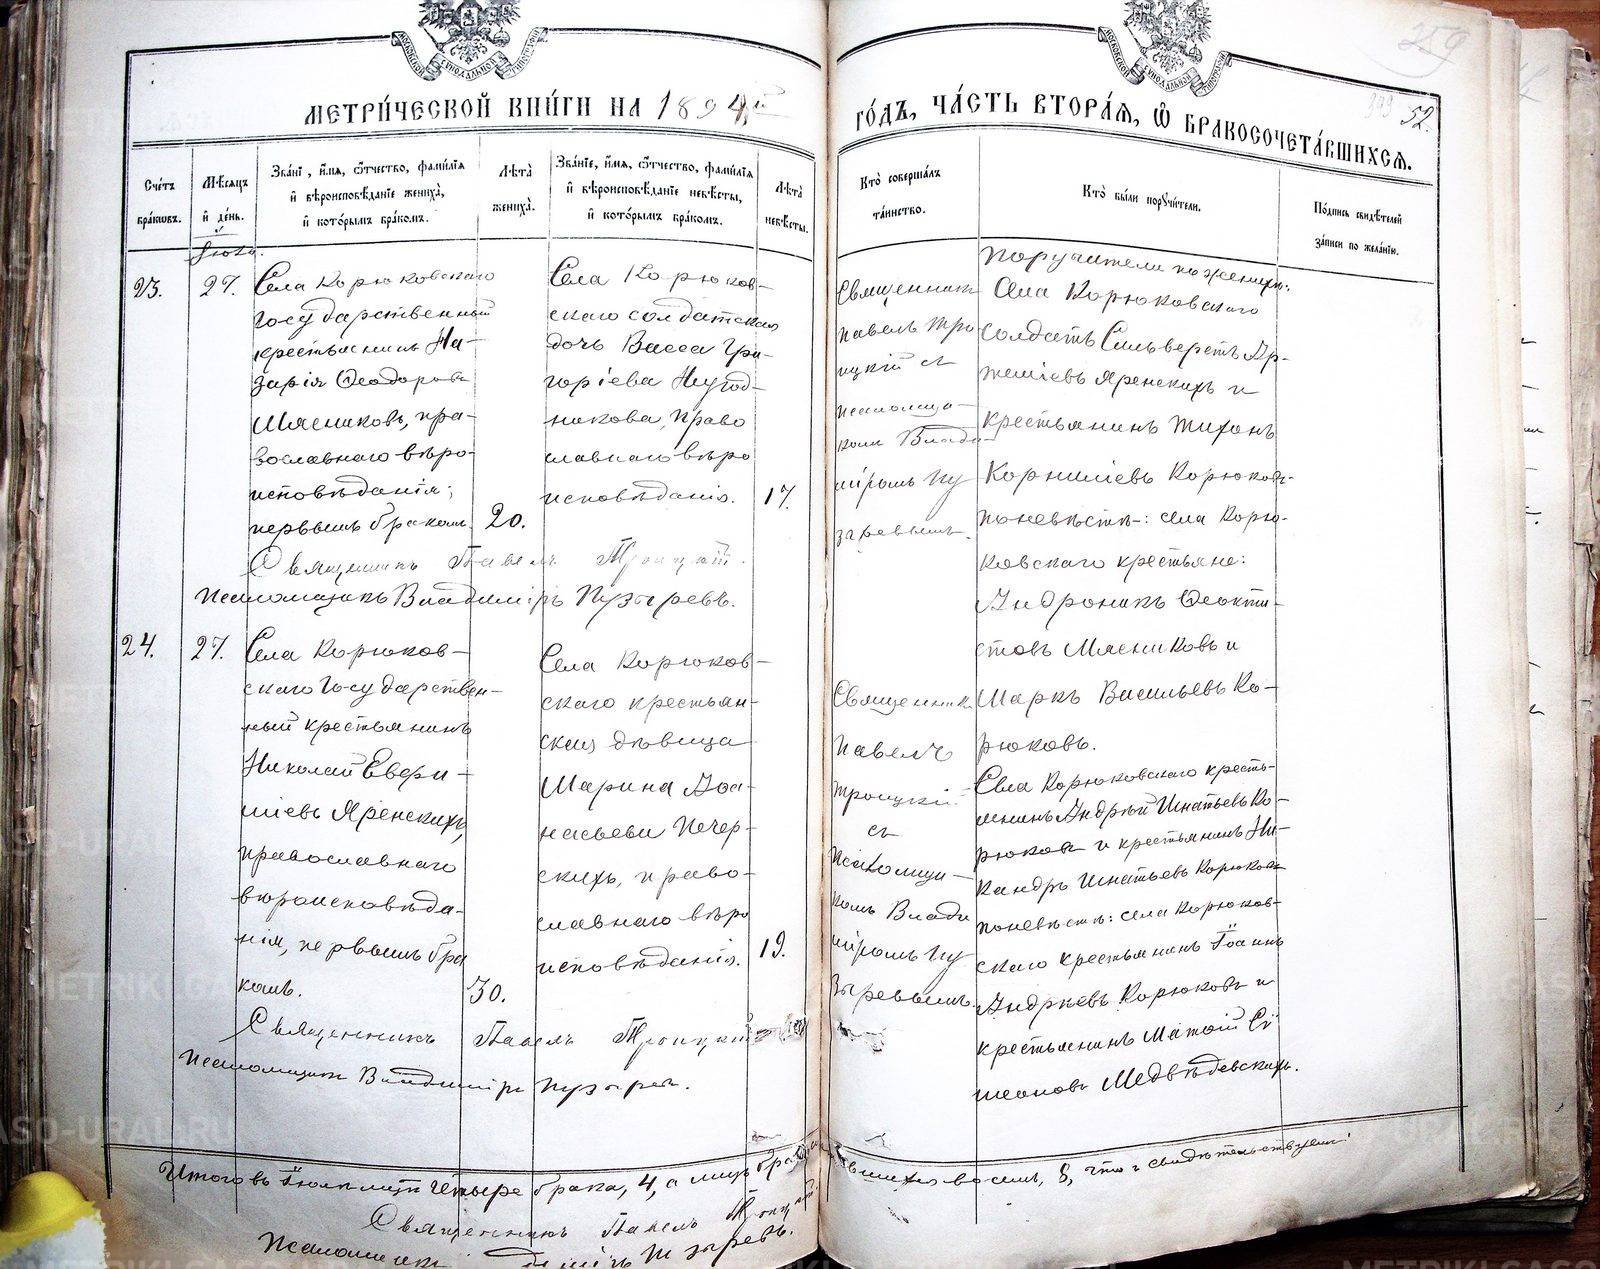 МЕТРИ́ЧЕСКОЙ КНИ́ГИ НА 1894й
ГО́ДЪ, ЧА́СТЬ ВТОРА́Я, Ѽ БРАКОСОЧЕТА́ВШИХСЯ.
259
52.
Сче́тъ бра́ковъ.
Мѣ́сяцъ и де́нь.
Зва́нїе, и́мя, ѻ́тчество, фами́лїя и вѣроисповѣ́данїе жениха̀, и кото́рымъ бра́комъ.
Лѣ́та жениха̀.
Зва́нїе, и́мя, ѻ́тчество, фами́лїя и вѣроисповѣ́данїе невѣ́сты, и кото́рымъ бра́комъ.
Лѣ́та невѣ́сты.
Кто̀ соверша́лъ та́инство.
Кто̀ бы́ли порꙋчи́тели.
По́дпись свидѣ́телей за́писи по жела́нїю.
Іюль.
23.
27.
Села Корюковскаго
государственный
крестьянинъ На-
зарій Ѳеодоровъ
Мясниковъ, пра-
вославнаго вѣро-
исповѣданія;
первымъ бракомъ.
20.
Села Корюков-
скаго солдатская
дочь Васса Гри-
горіева Негод-
никова, право
славнаго вѣро
исповѣданія.
17.
Священникъ
Павелъ Тро-
ицкій съ
псаломщи-
комъ Влади-
міромъ Пу
заревымъ.
Поручители по женихѣ:
Села Корюковскаго
солдатъ Сильверстъ Ар-
теміевъ Яренскихъ и
крестьянинъ Тихонъ
Корниліевъ Корюковъ
по невѣстѣ: села Корю-
ковскаго крестьяне:
Андроникъ Ѳеокти-
стовъ Мясниковъ и
Маркъ Васильевъ Ко-
рюковъ.
Священникъ Павелъ Троицкій.
Псаломщикъ Владиміръ Пузыревъ.
24.
27.
Села Корюков-
скаго государствен-
ный крестьянинъ
Николай Евѳи-
міевъ Яренскихъ,
православнаго
вѣроисповѣда-
нія, первымъ бра
комъ.
30.
Села Корюков-
скаго крестьян-
ская дѣвица
Марина Аѳа-
насьева Печер-
скихъ, право-
славнаго вѣро
исповѣданія.
19.
Священникъ
Павелъ
Троицкій
съ
псаломщи-
комъ Влади
міромъ Пу
зыревымъ.
Села Корюковскаго кресть-
янинъ Андрей Игнатьевъ Ко-
рюковъ и крестьянинъ Ни-
кандръ Игнатьевъ Корюковъ
по невѣстѣ: села Корюков-
скаго крестьянинъ Іоаннъ
Андреевъ Корюковъ и
крестьянинъ Матѳій Сі
меоновъ Медвѣдевскихъ.
Священникъ Павелъ Троицкій
Псаломщикъ Владиміръ Пузыревъ.
Итого въ Іюлѣ мѣсяцѣ четыре брака, 4, а лицъ бракосочетавшихся восемь, 8, что и свидѣтельствуемъ:
Священникъ Павелъ Троицкій
Псаломщикъ Владиміръ Пузыревъ.